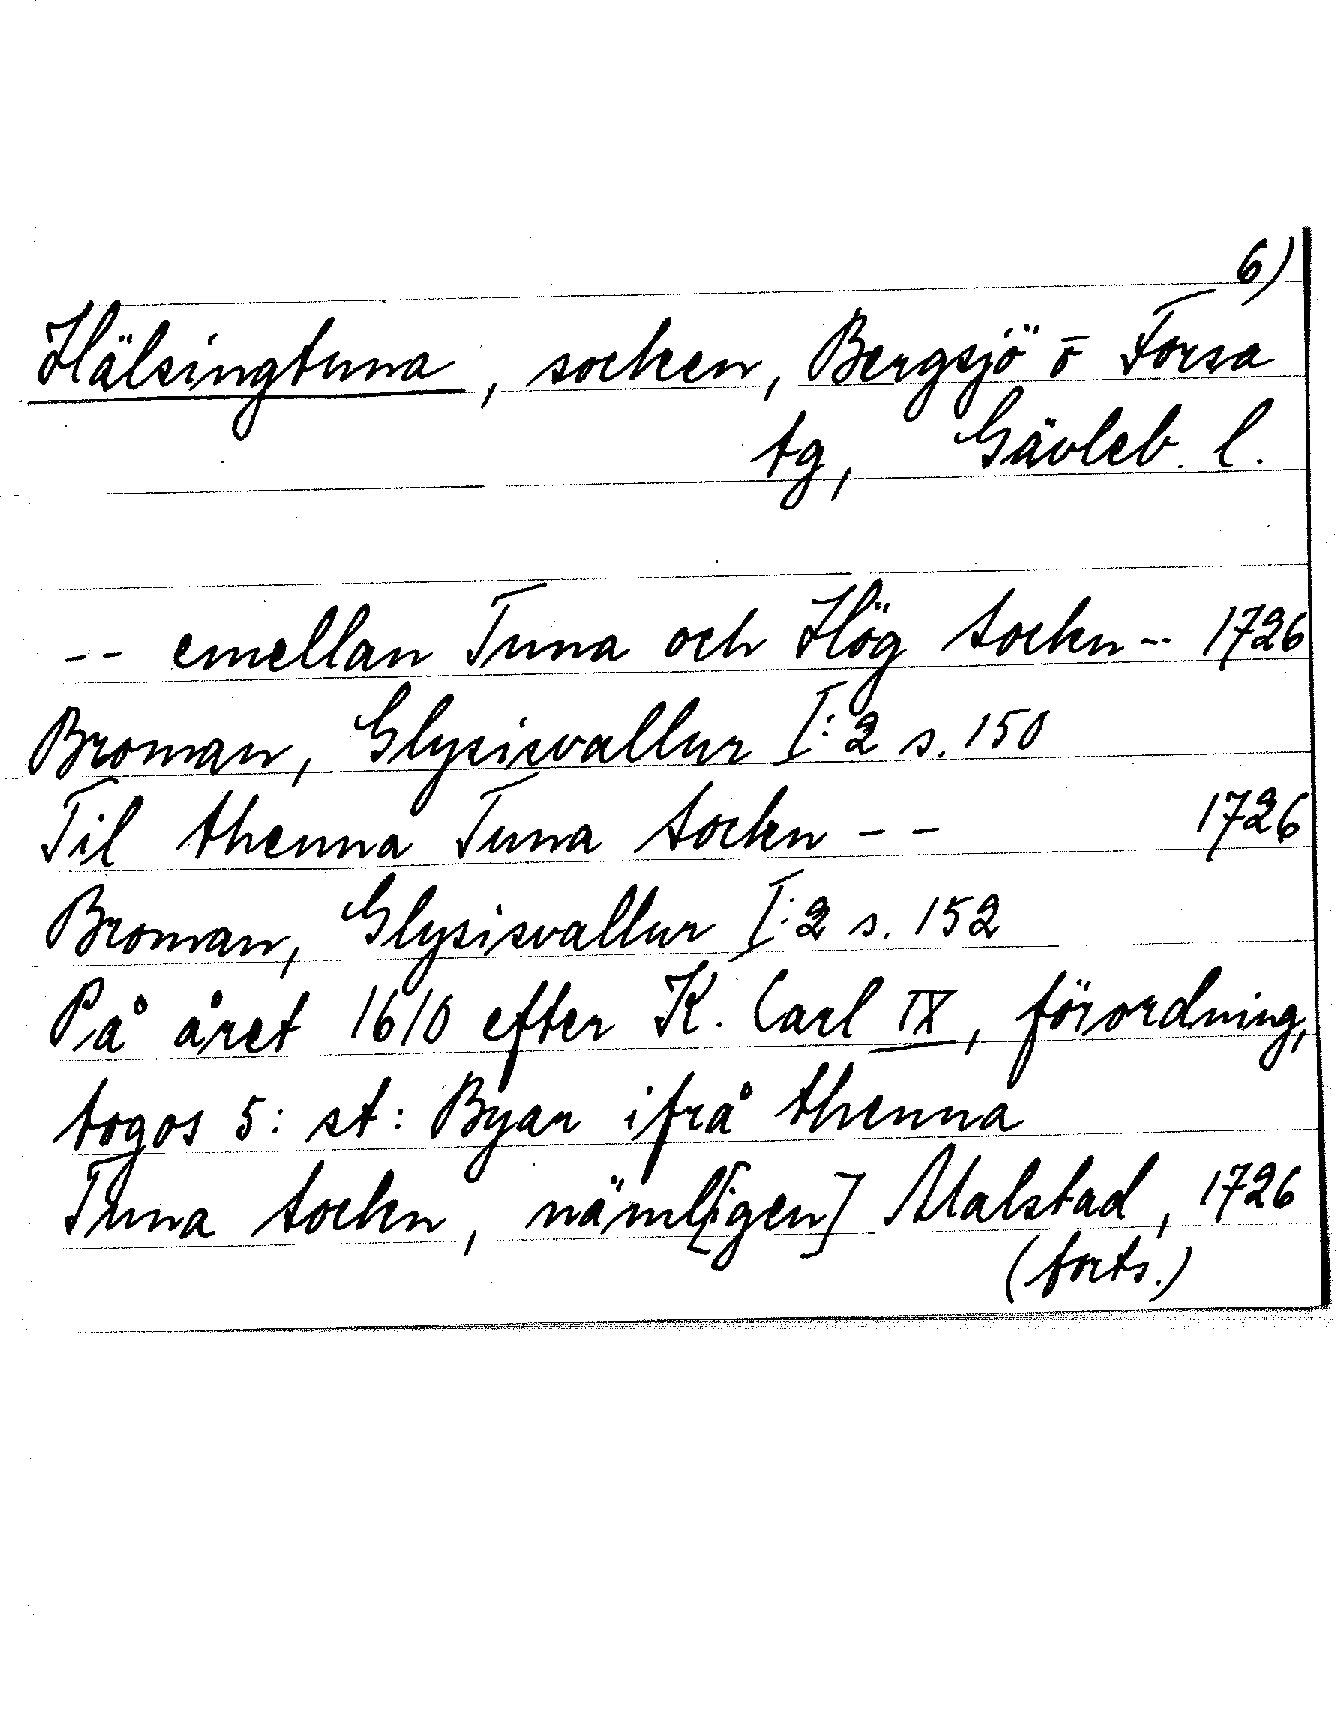 6)
Hälsingtuna, socken, Bergsjö o Forsa
tg, Gävleb. l.
-- emellan Tuna och Hög Sockn -- 1726
Broman, Glysisvallur I:2 s. 150
Til thenna Tuna Sockn -- 1726
Broman, Glysisvallur I:2 s. 152
På året 1610 efter K. Carl IX, förordning,
togos 5: st: Byar ifrå thenna
Tuna Sockn, näml[igen] Malstad, 1726
(forts.)